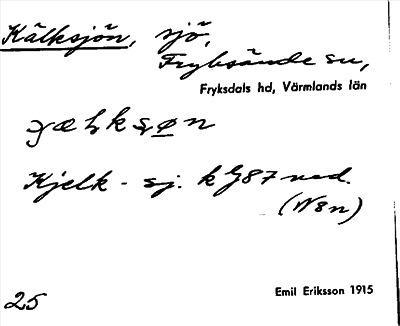 Kälksjön, sjö,
Fryksände sn,
Fryksdals hd, Värmlands län
Kjelk - sj. k G87 ned.
(N8n)
25
Emil Eriksson 1915